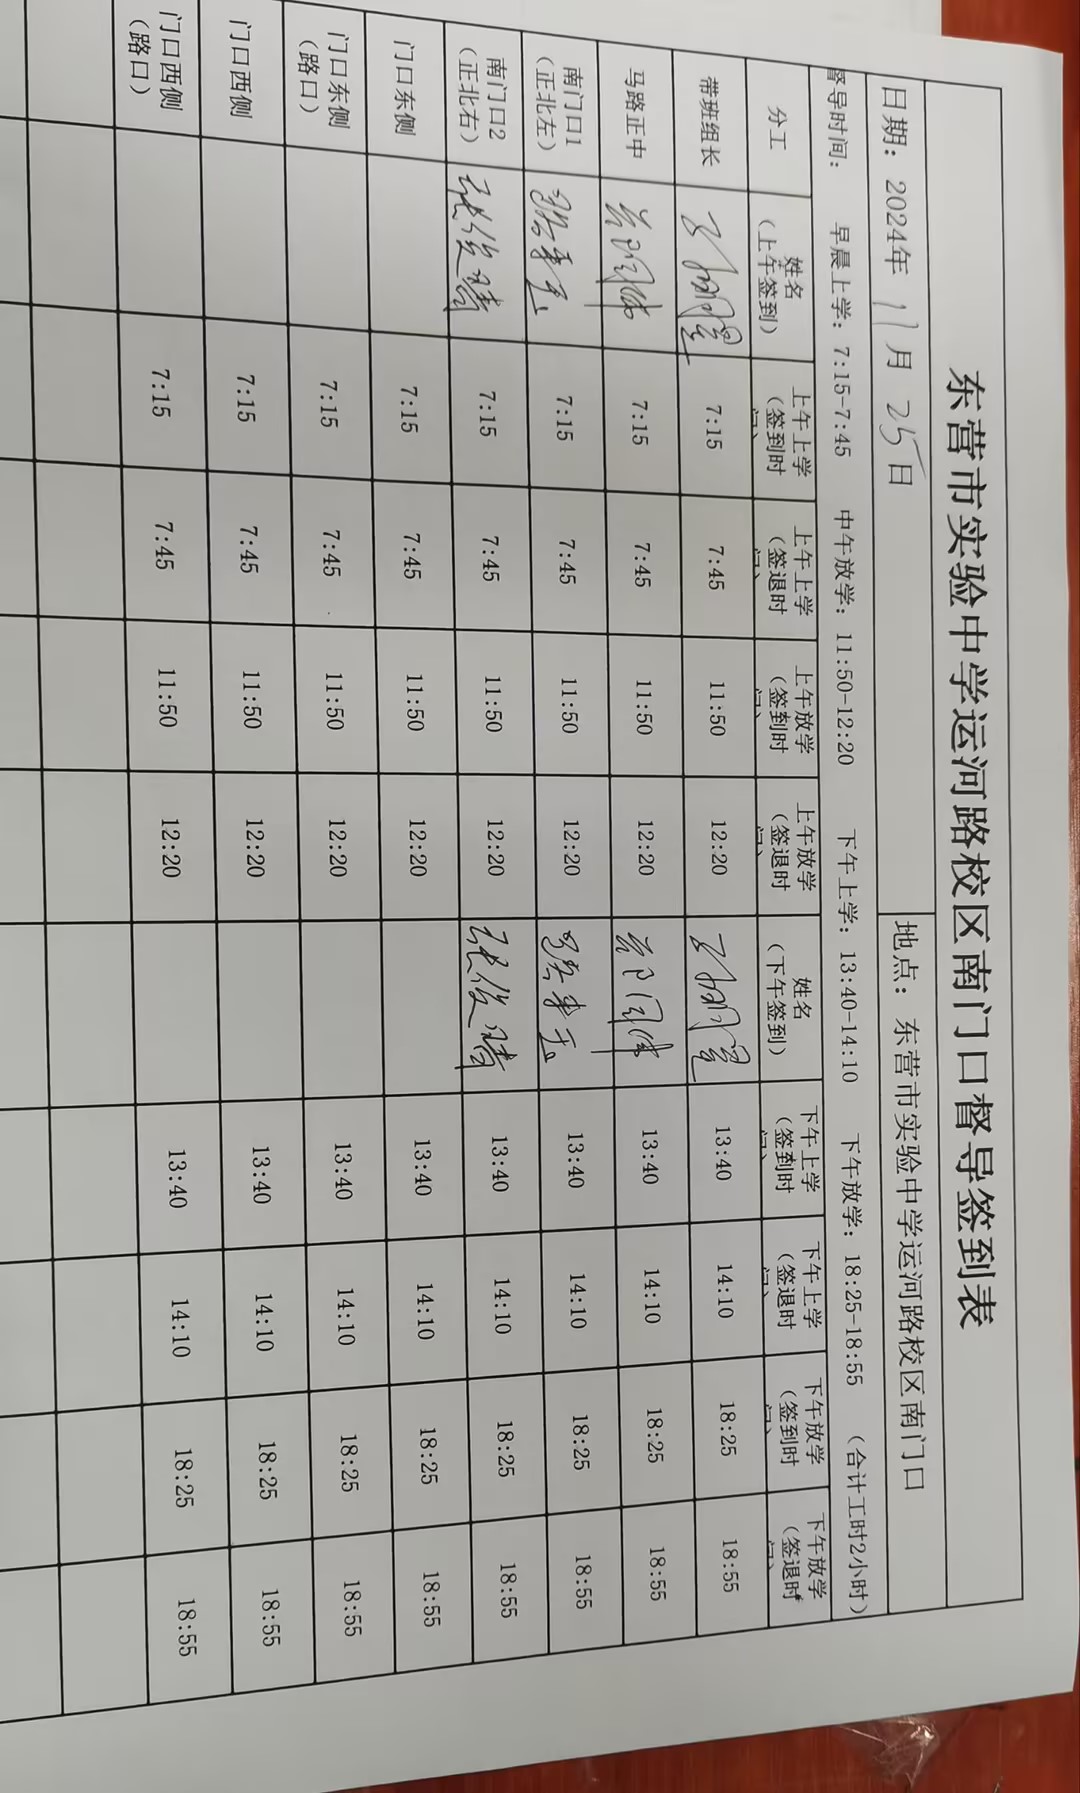 东营市实验中学运河路校区南门口督导签到表
日期：2024年 11月 25日 地点：东营市实验中学运河路校区南门口
督导时间： 早晨上学：7:15-7:45 中午放学：11:50-12:20 下午上学：13:40-14:10 下午放学：18:25-18:55 （合计工时2小时）
分工 姓名（上午签到） 上午上学（签到时间） 上午上学（签退时间） 上午放学（签到时间） 上午放学（签退时间） 姓名（下午签到） 下午上学（签到时间） 下午上学（签退时间） 下午放学（签到时间） 下午放学（签退时间）
带班组长 7:15 7:45 11:50 12:20 13:40 14:10 18:25 18:55
马路正中 7:15 7:45 11:50 12:20 13:40 14:10 18:25 18:55
南门口1（正北左） 7:15 7:45 11:50 12:20 13:40 14:10 18:25 18:55
南门口2（正北右） 张俊晴 7:15 7:45 11:50 12:20 张俊晴 13:40 14:10 18:25 18:55
门口东侧 7:15 7:45 11:50 12:20 13:40 14:10 18:25 18:55
门口东侧（路口） 7:15 7:45 11:50 12:20 13:40 14:10 18:25 18:55
门口西侧 7:15 7:45 11:50 12:20 13:40 14:10 18:25 18:55
门口西侧（路口） 7:15 7:45 11:50 12:20 13:40 14:10 18:25 18:55